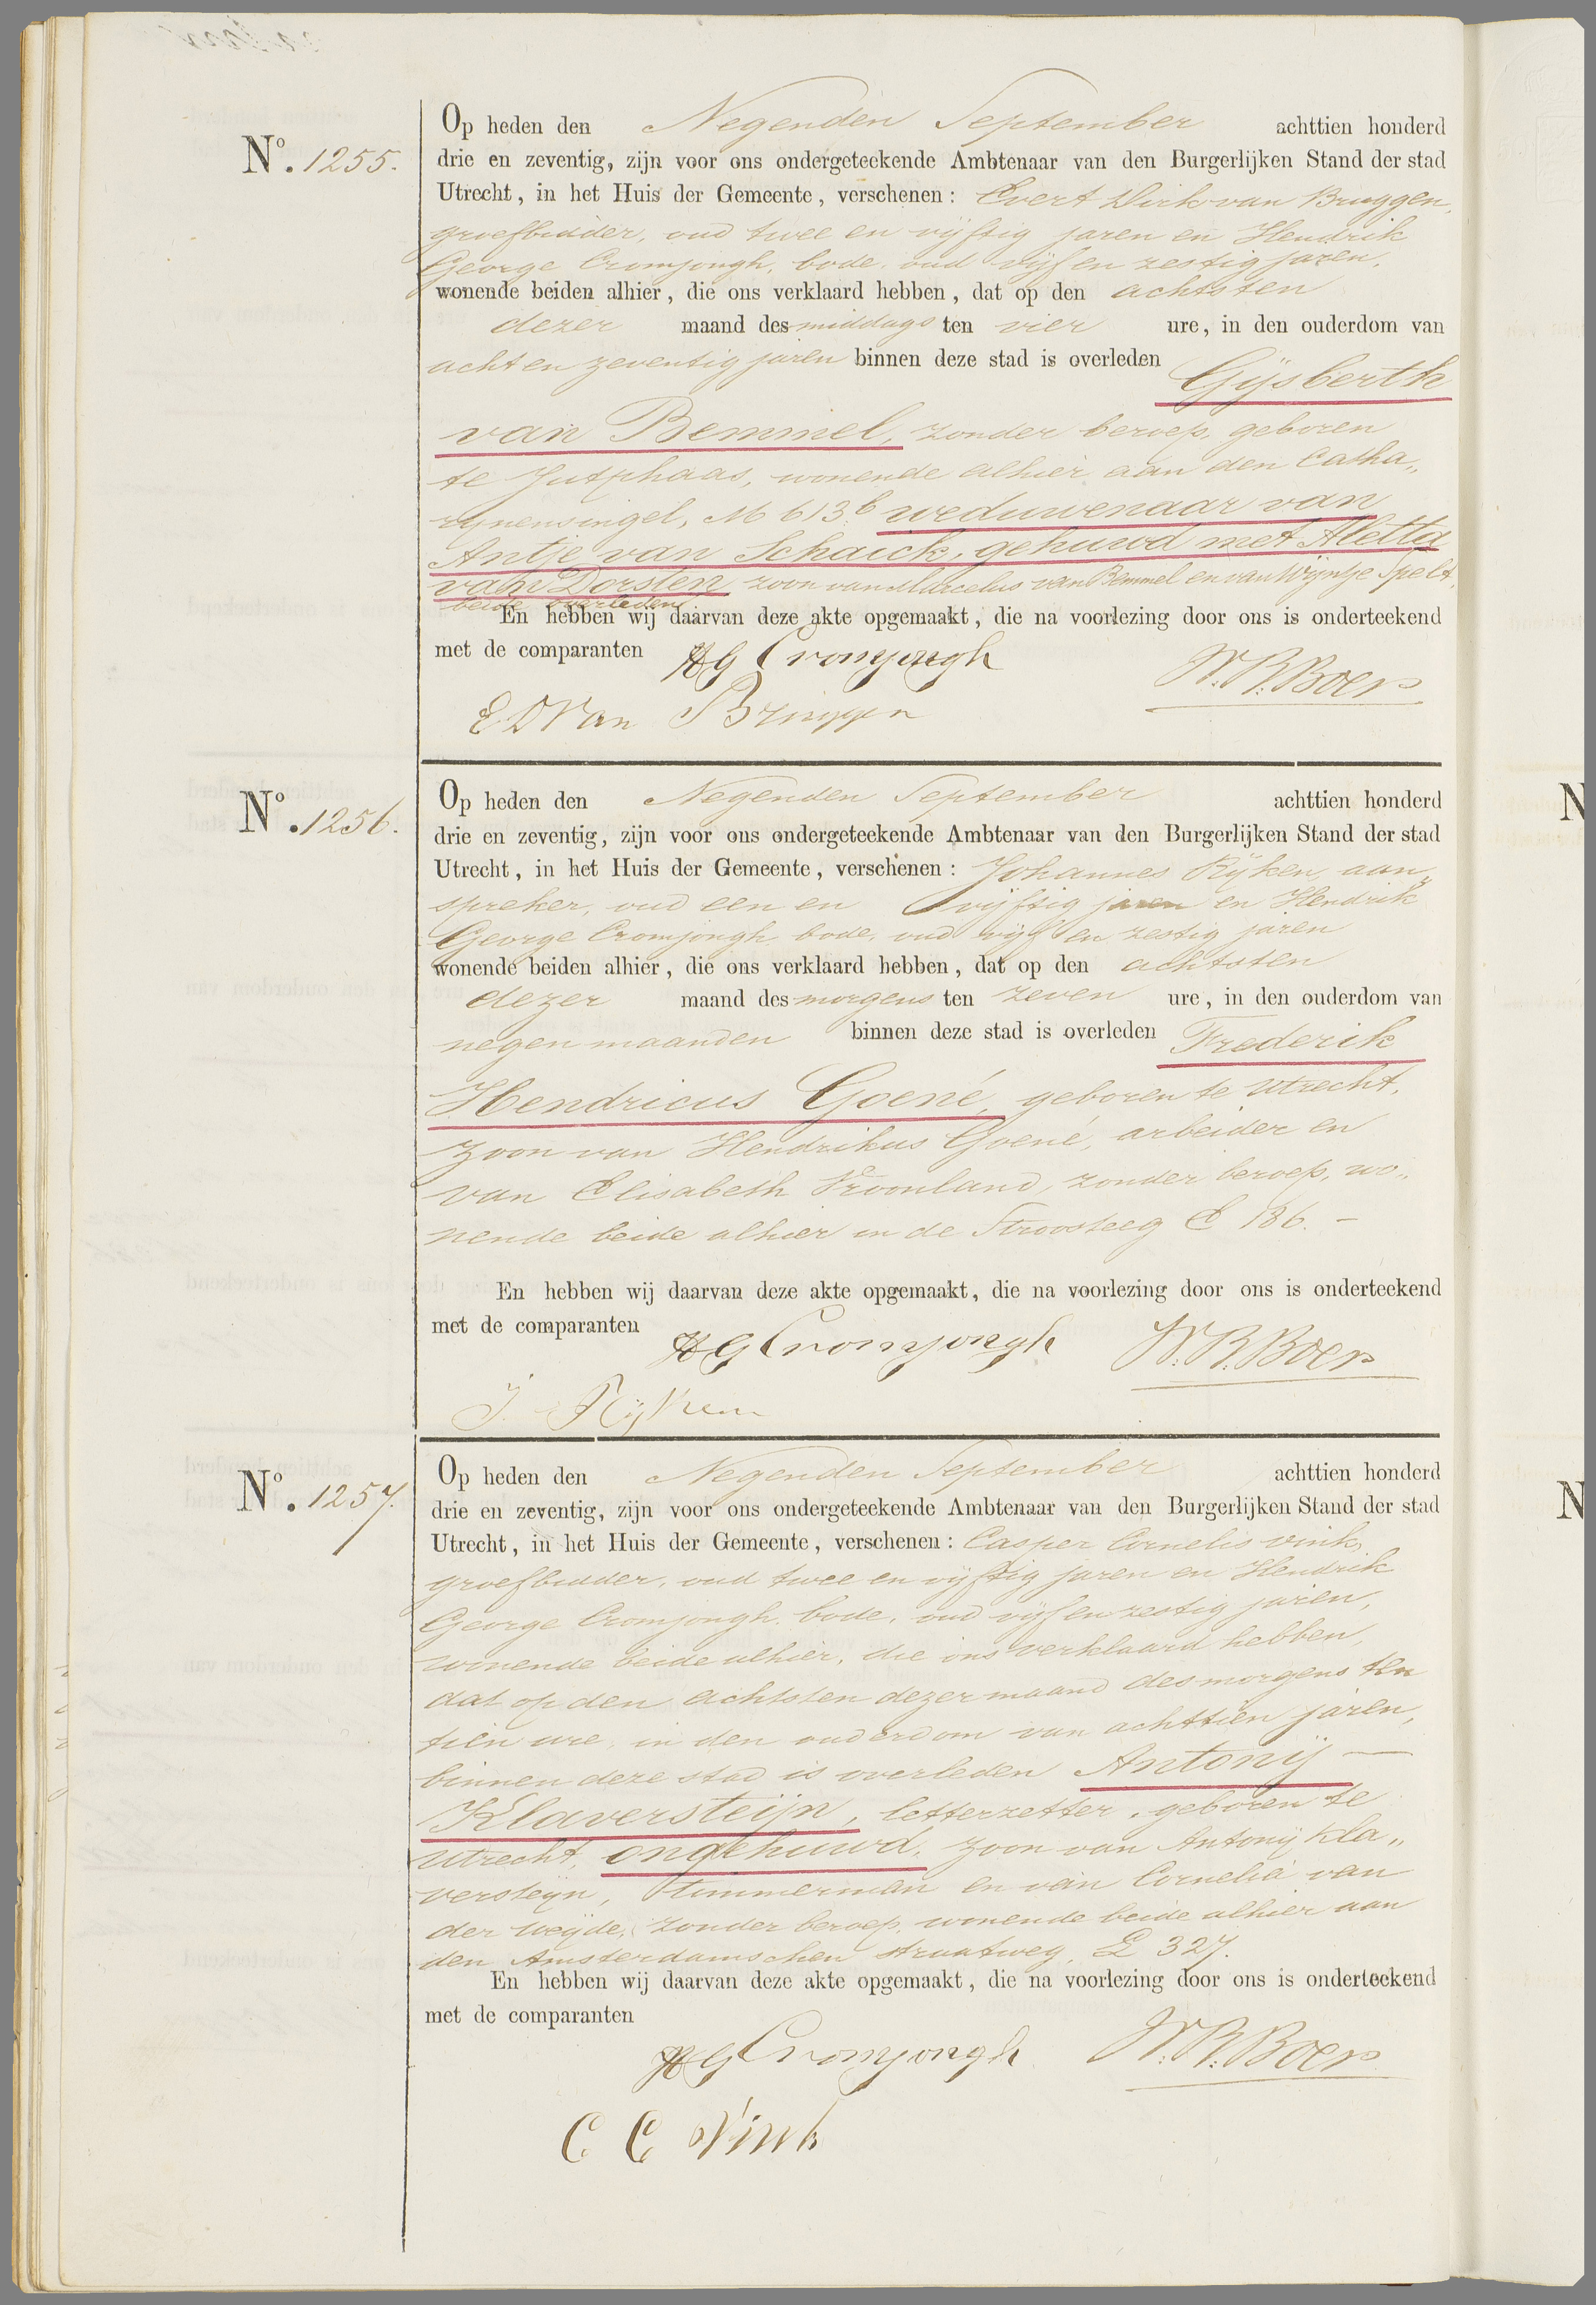 No. 1255.
Op heden den Negenden September achttien honderd
drie en zeventig, zijn voor ons ondergeteekende Ambtenaar van den Burgerlijken Stand der stad
Utrecht, in het Huis der Gemeente, verschenen: Evert Dirk van Bruggen,
groefbidder, oud twee en vijftig jaren en Hendrik
George Cromjongh, bode, oud vijf en zestig jaren,
wonende beiden alhier, die ons verklaard hebben, dat op den achtsten
dezer maand des middags ten vier ure, in den ouderdom van
acht en zeventig jaren binnen deze stad is overleden Gijsberth
van Bemmel, zonder beroep, geboren
te Jutphaas, wonende alhier aan den Catha„
rijnensingel, M 613b weduwenaar van
Antje van Schaick, gehuwd met Aletta
van Dorsten, zoon van Marcelus van Bemmel en van Wijntje Spelt,
beide overleden
En hebben wij daarvan deze akte opgemaakt, die na voorlezing door ons is onderteekend
met de comparanten HG Cromjongh W.R.Boer
E D Van Bruggen
No. 1256.
Op heden den Negenden September achttien honderd
drie en zeventig, zijn voor ons ondergeteekende Ambtenaar van den Burgerlijken Stand der stad
Utrecht, in het Huis der Gemeente, verschenen: Johannes Rijken, aan„
spreker, oud een en vijftig jaren en Hendrik
George Cromjongh, bode, oud vijf en zestig jaren
wonende beiden alhier, die ons verklaard hebben, dat op den achtsten
dezer maand des morgens ten zeven ure, in den ouderdom van
negen maanden binnen deze stad is overleden Frederik
Hendricus Goené, geboren te Utrecht,
zoon van Hendrikus Goené, arbeider en
van Elisabeth Vroonland, zonder beroep, wo„
nende beide alhier in de Stroosteeg E 186. –
En hebben wij daarvan deze akte opgemaakt, die na voorlezing door ons is onderteekend
met de comparanten HG Cromjongh W.R.Boer
J. Rijken
No. 1257.
Op heden den Negenden September achttien honderd
drie en zeventig, zijn voor ons ondergeteekende Ambtenaar van den Burgerlijken Stand der stad
Utrecht, in het Huis der Gemeente, verschenen: Casper Cornelis Vink,
groefbidder, oud twee en vijftig jaren en Hendrik
George Cromjongh, bode, oud vijf en zestig jaren,
wonende beide alhier, die ons verklaard hebben,
dat op den achtsten dezer maand des morgens ten
tien ure, in den ouderdom van achttien jaren,
binnen deze stad is overleden Antonij –
Klaversteijn, letterzetter, geboren te
Utrecht, ongehuwd, zoon van Antonij Kla„
versteijn, timmerman en van Cornelia van
der Weijde, zonder beroep, wonende beide alhier aan
den Amsterdamschen straatweg, L 327.
En hebben wij daarvan deze akte opgemaakt, die na voorlezing door ons is onderteekend
met de comparanten
HG Cromjongh W.R.Boer
C C Vink